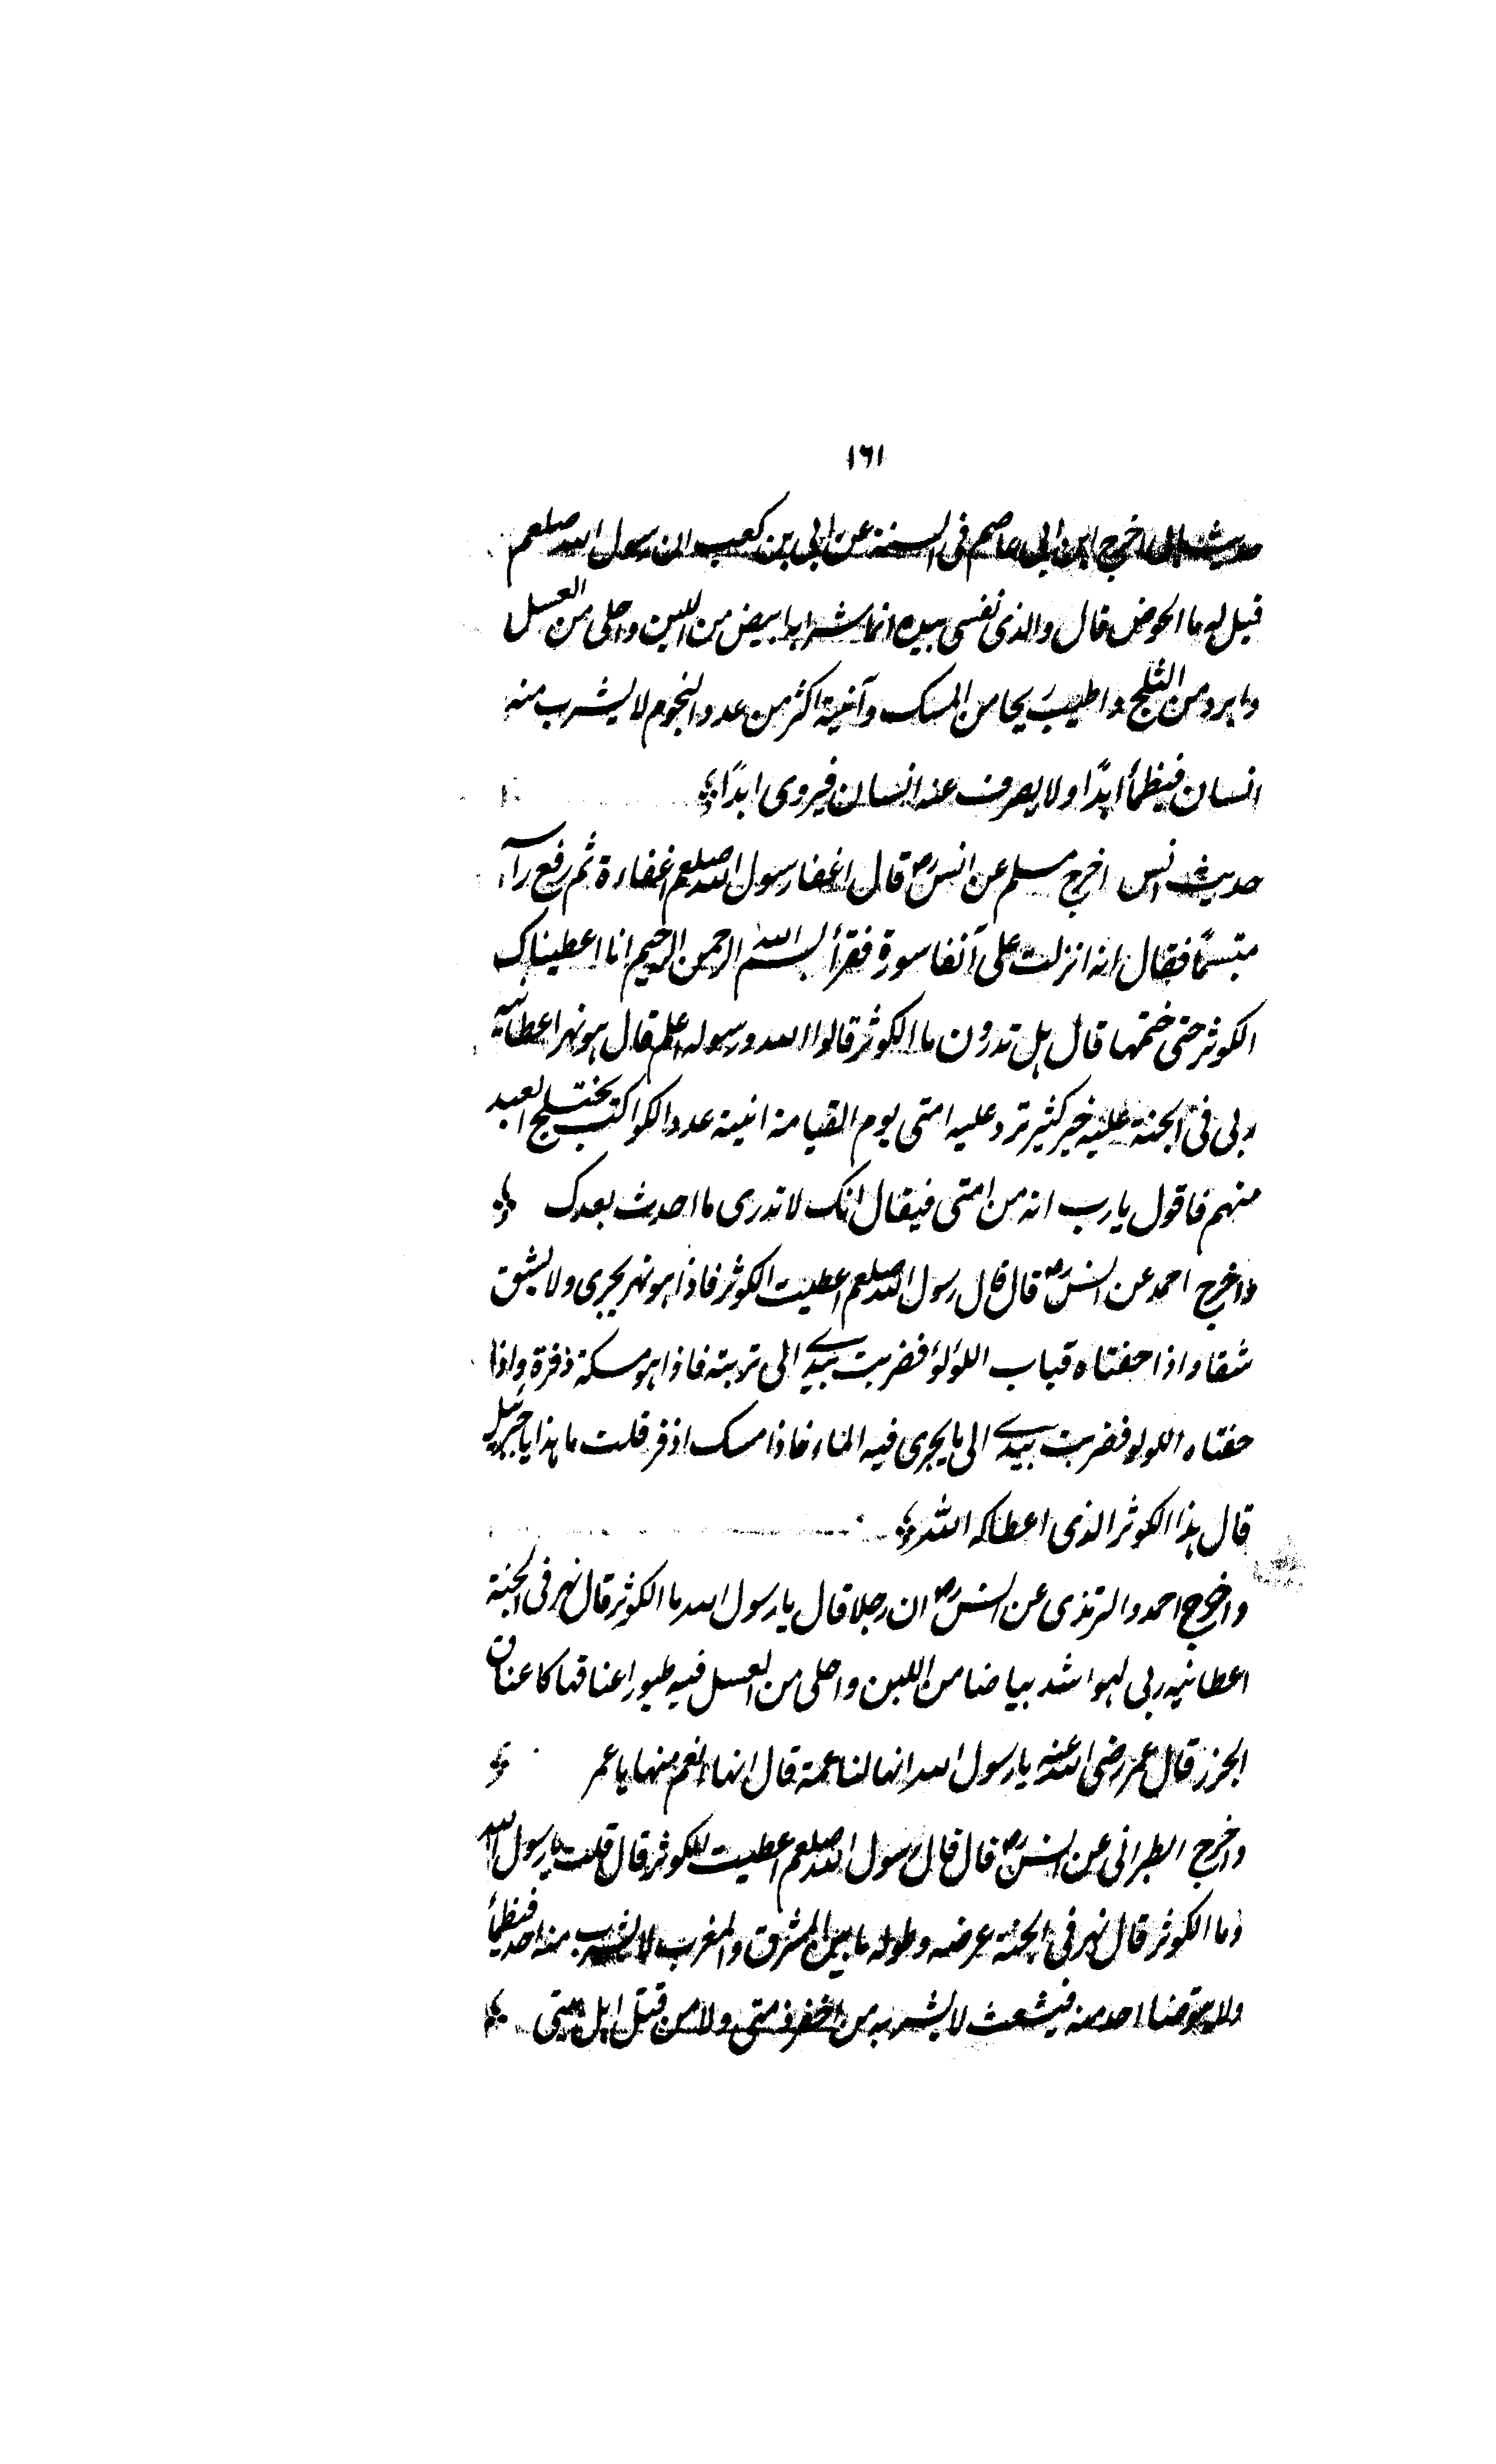 ١٦١
حدیث ابی اخرج ابن ابی عاصم فی السنة عن ابی بن کعب ان رسول الله صلعم
قیل له ما الحوض قال والذی نفسی بیده انما شرابه ابیض من اللبن واحلی من العسل
وابرد من الثلج واطیب ریحا من المسک وآنیة اکثر من عدد النجوم لا یشرب منه
انسان فیظمأ ابدًا ولا یصرف عنه انسان فیروی ابدًا
حدیث انس اخرج مسلم عن انس رض قال اغفا رسول الله صلعم اغفاءة ثم رفع رأسه
متبسمًا فقال انه انزلت علی آنفا سورة فقرأ بسم الله الرحمن الرحیم انا اعطیناک
الکوثر حتی ختمها قال هل تدرون ما الکوثر قالوا الله ورسوله اعلم قال هو نهر اعطانیه
ربی فی الجنة علیه خیر کثیر ترد علیه امتی یوم القیامة انیته عدد الکواکب یختلج العبد
منهم فاقول یا رب انه من امتی فیقال انک لا تدری ما احدث بعدک
واخرج احمد عن انس رض قال قال رسول الله صلعم اعطیت الکوثر فاذا هو نهر یجری ولا یشق
شقا واذا حفتاه قباب اللؤلؤ فضربت بیدی الی تربته فاذا هو مسکة ذفرة واذا
حفتاه اللولو فضربت بیدی الی ما یجری فیه الماء فاذا مسک اذفر قلت ما هذا یا جبریل
قال هذا الکوثر الذی اعطاکه الله
واخرج احمد والترمذی عن انس رض ان رجلا قال یا رسول الله ما الکوثر قال نهر فی الجنة
اعطانیه ربی لهو اشد بیاضا من اللبن واحلی من العسل فیه طیور اعناقها کاعناق
الجزر قال عمر رضی الله عنه یا رسول الله انها لناعمة قال انها انعم منها یا عمر
واخرج الطبرانی عن انس رض قال قال رسول الله صلعم اعطیت الکوثر قال قلت یا رسول الله
وما الکوثر قال نهر فی الجنة عرضه وطوله ما بین المشرق والمغرب لا یشرب منه احد فیظمأ
ولا یتوضا احد منه فیشعث لا یشربه من اخفر ذمتی ولا من قتل اهل بیتی